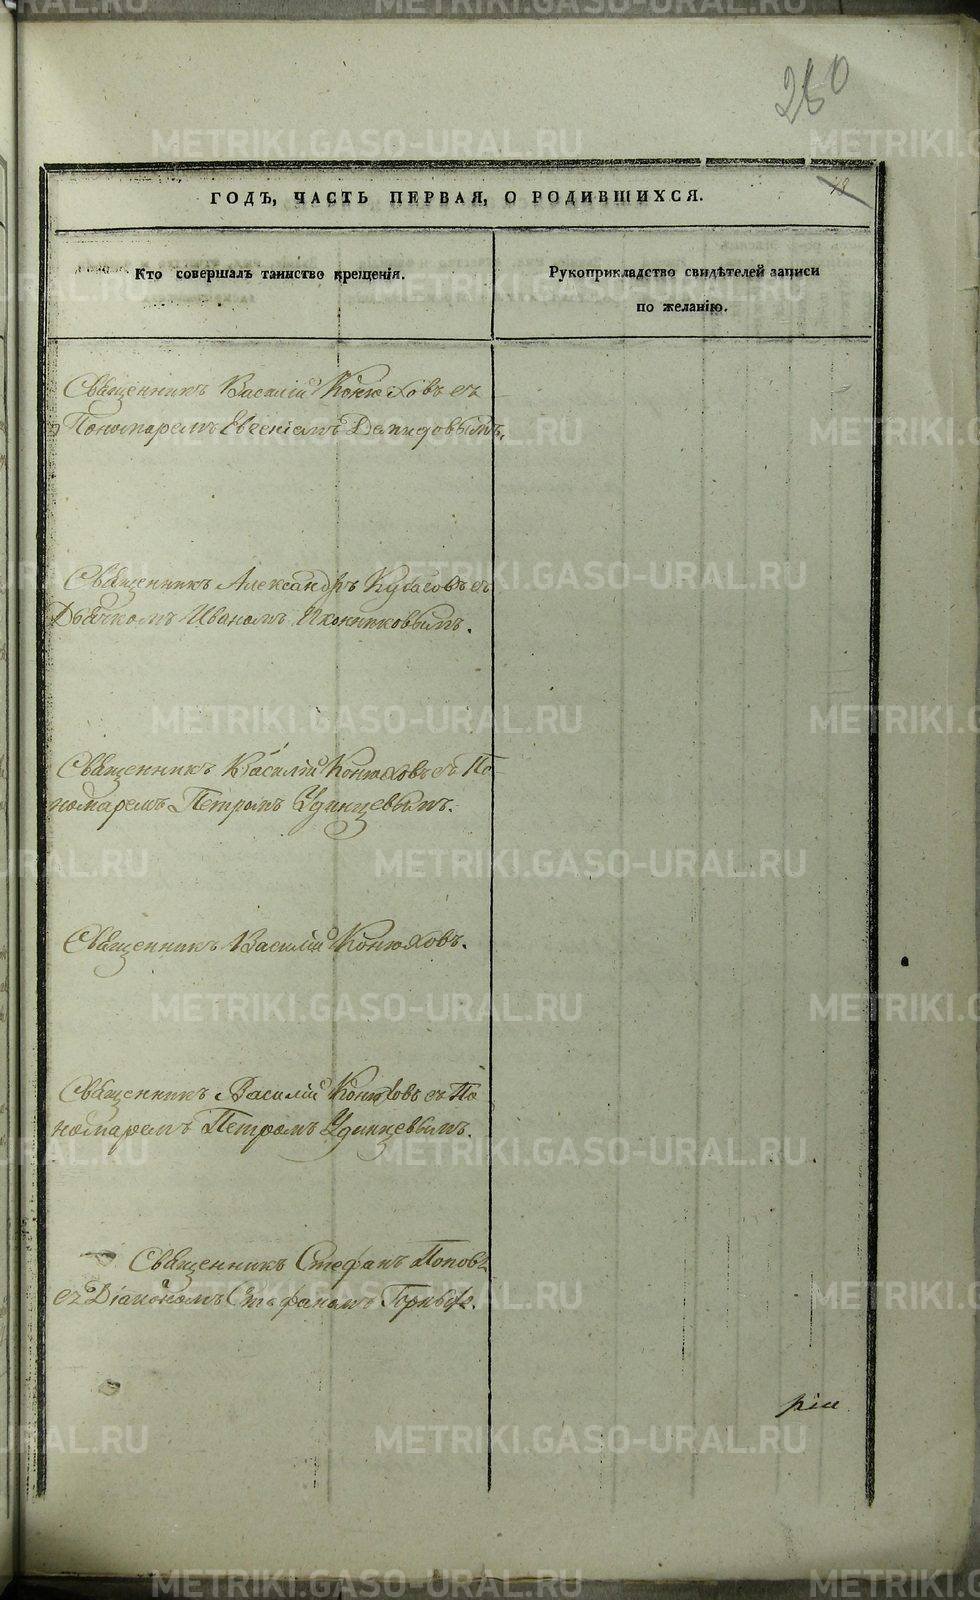 260
18
ГОДЪ, ЧАСТЬ ПЕРВАЯ, О РОДИВШИХСЯ.
Кто совершалъ таинство крещенія.
Рукоприкладство свидѣтелей записи
по желанію.
Священникъ Василій Конюховъ съ
Пономаремъ Евгеніемъ Давидовымъ.
Священникъ Александръ Кубасовъ съ
Дьячкомъ Иваномъ Иконниковымъ.
Священникъ Василій Конюховъ съ По
номаремъ Петромъ Удинцевымъ.
Священникъ Василій Конюховъ.
Священникъ Василій Конюховъ съ По
номаремъ Петромъ Удинцевымъ.
Священникъ Стефанъ Поповъ
съ Діакономъ Стефаномъ
METRIKI.GASO-URAL.RU